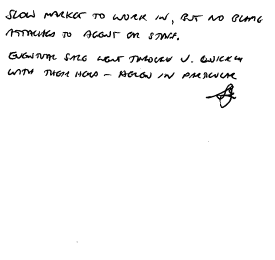 SLOW MARKET TO WORK IN, BUT NO BLAME
ATTACHES TO AGENT OR STAFF.
EVENTUAL SALE WENT THROUGH V. QUICKLY
WITH THEIR HELP - HELEN IN PARTICULAR